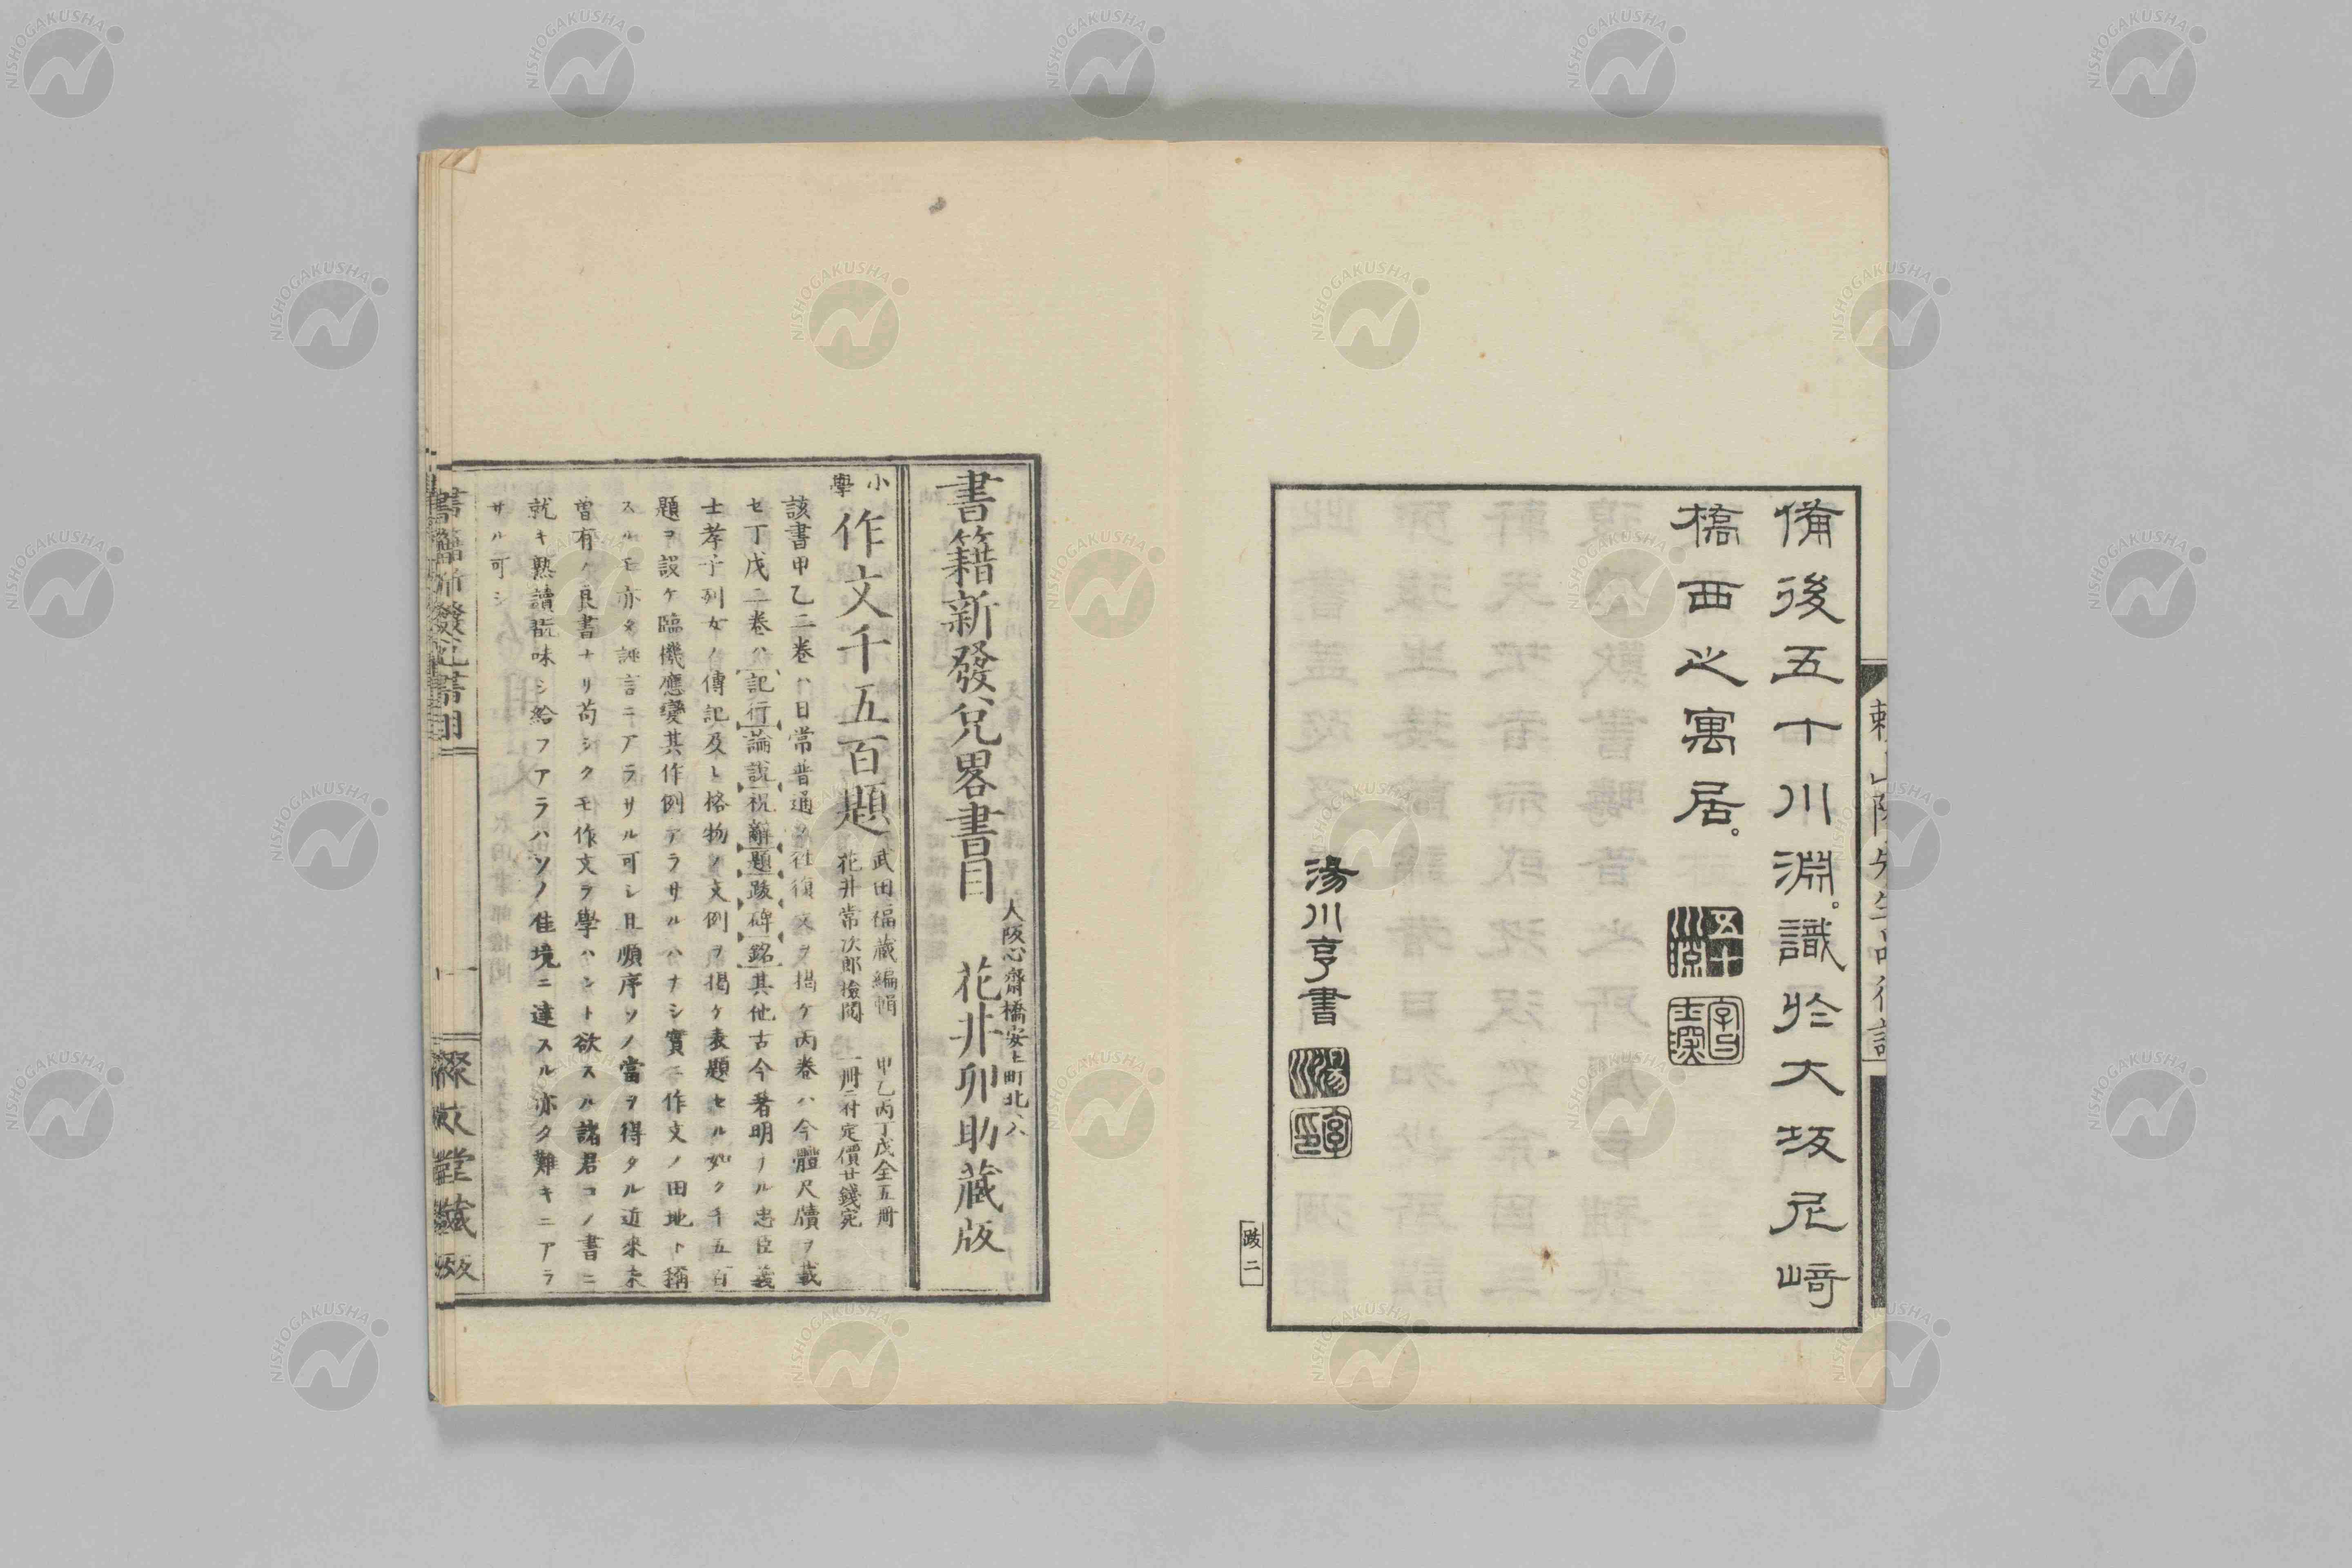 備後五十川淵。識於大坂尼﨑
橋西之寓居。
湯川亨書
跋二
書籍新發兌畧書目
大阪心齋橋安土町北ヘ入
花井卯助藏版
小學
作文千五百題
武田福藏編輯
花井常次郎檢閲
甲乙丙丁戊全五冊
一冊ニ付定價廿錢宛
該書甲乙二巻ハ日常普通ノ往復文ヲ掲ケ丙巻ハ今體尺牘ヲ載
セ丁戊二巻ハ記行論説祝辭題跋碑銘其他古今著明ナル忠臣義
士孝子列女ノ傳記及ヒ格物ノ文例ヲ掲ケ表題セル如ク千五百
題ヲ設ケ臨機應變其作例アラサルハナシ實ニ作文ノ田地ト稱
スルモ亦タ誣言ニアラサル可シ且順序ソノ當ヲ得タル近來未
曽有ノ良書ナリ苟シクモ作文ヲ學ハント欲スル諸君コノ書ニ
就キ熟讀翫味シ給フアラハソノ佳境ニ達スル亦タ難キニアラ
サル可シ
書籍新發兌書目
一
綴文堂藏版
NISHOGAKUSHA